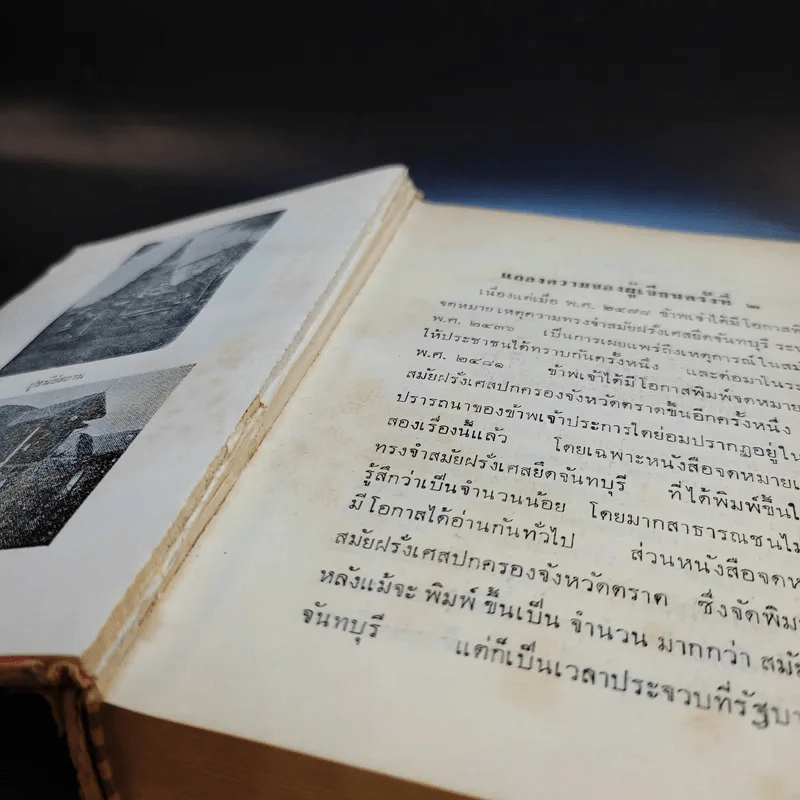 ปูชนียสถาน
แถลงความของผู้เขียนครั้งที่ ๒
เนื่องแต่เมื่อ พ.ศ. ๒๔๗๘ ข้าพเจ้าได้มีโอกาสพิ
จดหมายเหตุความทรงจำสมัยฝรั่งเศสยึดจันทบุรี
พ.ศ. ๒๔๓๖ เป็นการเผยแพร่ถึงเหตุการณ์ในสมั
ให้ประชาชนได้ทราบกันครั้งหนึ่ง และต่อมาใน
พ.ศ. ๒๔๘๑ ข้าพเจ้าได้มีโอกาสพิมพ์จดหมาย
สมัยฝรั่งเศสปกครองจังหวัดตราดขึ้นอีกครั้งหนึ่ง
ปรารถนาของข้าพเจ้าประการใดย่อมปรากฏอยู่ใน
สองเรื่องนี้แล้ว โดยเฉพาะหนังสือจดหมายเ
ทรงจำสมัยฝรั่งเศสยึดจันทบุรี ที่ได้พิมพ์ขึ้นใ
รู้สึกว่าเป็นจำนวนน้อย โดยมากสาธารณชนไม
มีโอกาสได้อ่านกันทั่วไป ส่วนหนังสือจดห
สมัยฝรั่งเศสปกครองจังหวัดตราด ซึ่งจัดพิม
หลังแม้จะพิมพ์ขึ้นเป็นจำนวนมากกว่า สมัย
จันทบุรี แต่ก็เป็นเวลาประจวบที่รัฐบา